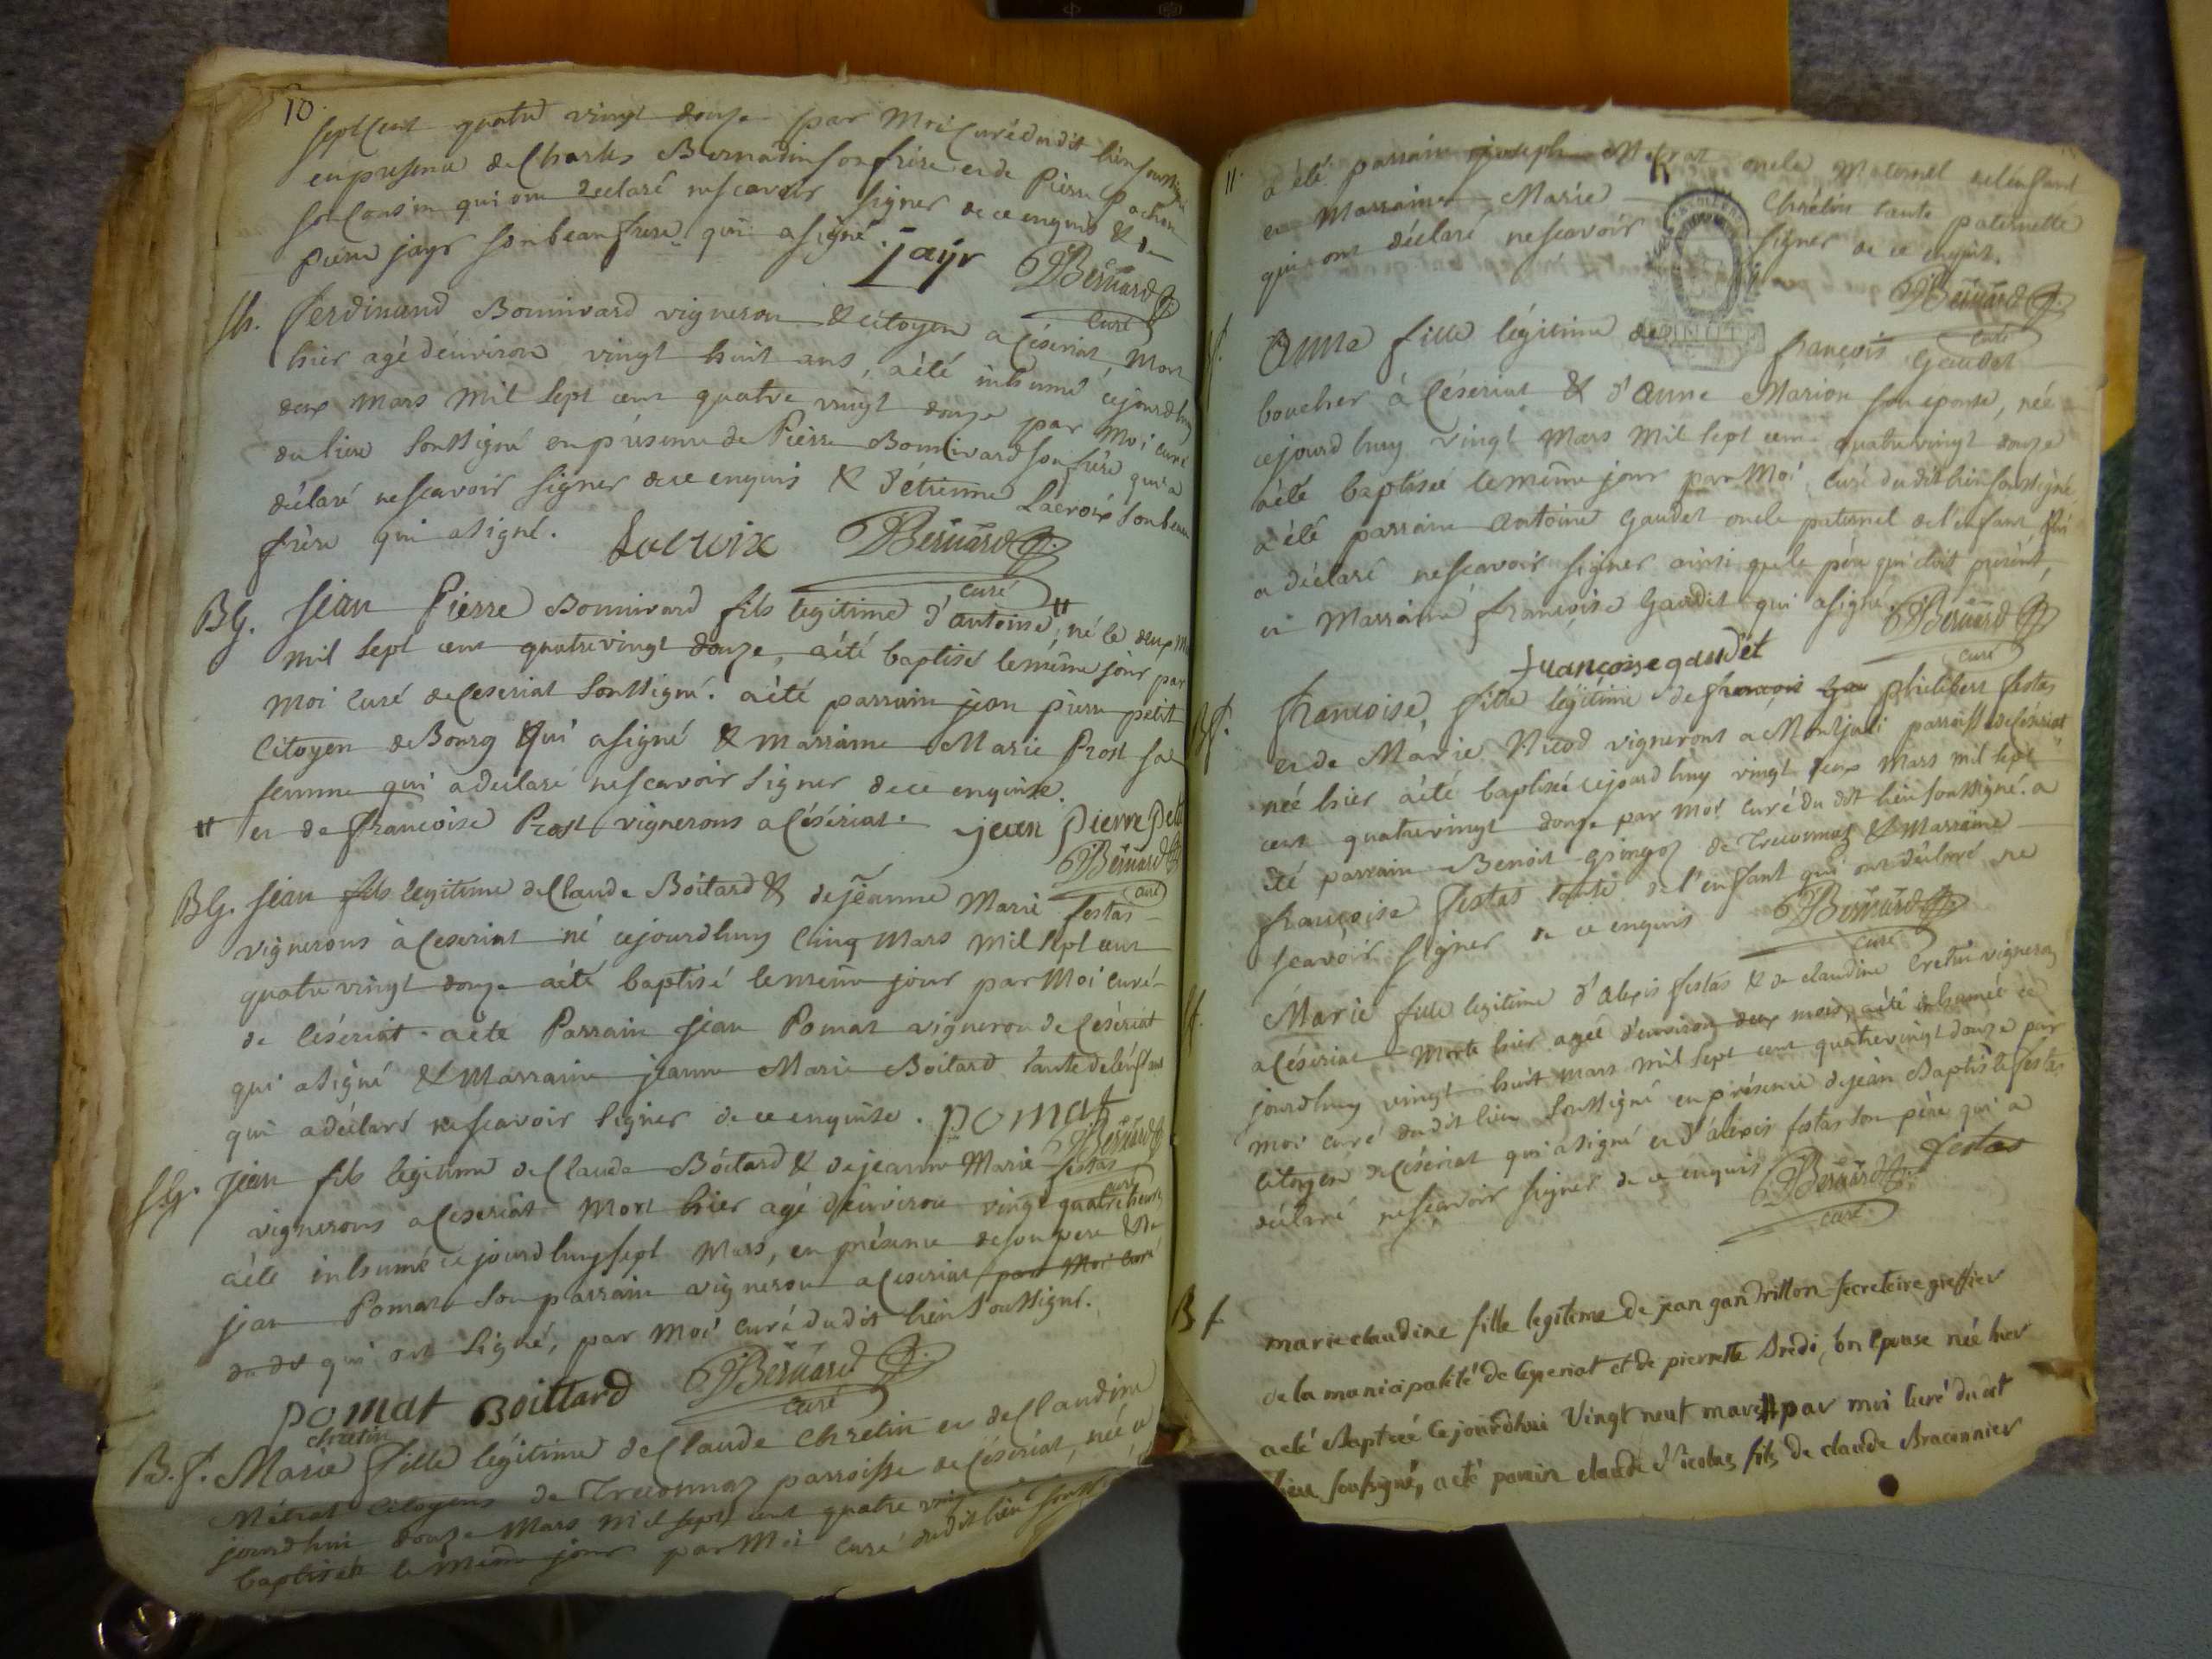 10.
sept cent quatre vingt douze par moi curé dudit lieu soussigné
en presence de Charles Bernadin son frère et de Pierre pochon
son cousin qui ont declaré ne scavoir signer de ce enquis & de
pierre jayr son beau frere qui a signé.
jayr DBernard
curé
Sh. Ferdinand Bonnivard vigneron & citoyen a Céseriat, mort
hier agé d'environ vingt huit ans, a été inhumé cejourdhuy
deux mars mil sept cent quatre vingt douze par moi curé
du lieu soussigné en présence de Pierre Bonnivard son frère qui a
déclaré ne scavoir signer de ce enquis & d'étienne Lacroix son beau
frère qui a signé.
Lacroix DBernard
curé
BG. Jean Pierre Bonnivard fils legitime d'antoine #, né le deux mars
mil sept cent quatre vingt douze, a été baptisé le même jour par
moi curé de Ceseriat soussigné. a été parrain jean pierre petit
citoyen de Bourg qui a signé & marraine Marie Prost sa
femme qui a declaré ne scavoir signer de ce enquise.
# et de françoise Prost vignerons a Céseriat. jean pierre petit
DBernard
curé
BG. Jean fils legitime de Claude Boitard & de jeanne Marie festas
vignerons à Ceseriat né cejourdhuy cinq mars mil sept cent
quatre vingt douze a été baptisé le même jour par moi curé
de Céseriat. a été Parrain Jean Pomat vigneron de Céseriat
qui a signé & marraine jeanne Marie Boitard tante de l'enfant
qui a déclaré ne scavoir signer de ce enquise. pomat
DBernard
curé
S.G. Jean fils legitime de Claude Boitard & de jeanne Marie festas
vignerons a Ceseriat mort hier agé d'environ vingt quatre heures
a été inhumé cejourdhuy sept mars, en présence de son pere & de
jean Pomat son parrain vigneron a Ceseriat par moi curé
dudit qui ont signé, par moi curé dudit lieu soussigné.
pomat Boillard DBernard
curé
chretin
B.f. Marie fille légitime de Claude chretin et de Claudine
Métrat citoyens de Treconnaz parroisse de Céseriat, née ce
jourdhui douze mars mil sept cent quatre vingt
baptisée le même jour par moi curé dudit lieu
11.
a été parrain joseph Metrat oncle maternel de l'enfant
et marraine Marie Chrétin tante paternelle
qui ont déclaré ne scavoir signer de ce enquis.
DBernard
curé
Anne fille légitime de françois Gaudet
boucher à Céseriat & d'Anne Marion son épouse, née
cejourdhuy vingt mars mil sept cent quatre vingt douze
a été baptisée le même jour par moi curé dudit lieu soussigné
a été parrain Antoine Gaudet oncle paternel de l'enfant, qui
a déclaré ne scavoir signer ainsi que le père qui étoit présent,
et marraine françoise Gaudet qui a signé. DBernard
curé
françoise gaudet
Bf. françoise, fille légitime de françois Gau philibert festas
et de Marie Nicod vignerons a Montjuli parroisse de Céseriat
née hier a été baptisée cejourdhuy vingt deux mars mil sept
cent quatre vingt douze par moi curé du dit lieu soussigné. a
été parrain Benoit Gringoz de Treconnaz & marraine
françoise festas tante de l'enfant qui ont déclaré ne
scavoir signer de ce enquis DBernard
curé
Marie fille legitime d'alexis festas & de claudine Cretin vignerons
a Céseriat morte hier agée d'environ deux mois, a été inhumée ce
jourdhuy vingt huit mars mil sept cent quatre vingt douze par
moi curé dudit lieu soussigné en présence de jean Baptiste festas
citoyen de Céseriat qui a signé et d'alexis festas son père qui a
déclaré ne scavoir signer de ce enquis DBernard festas
curé
B f marie claudine fille legiteme de jean gandrillon secreteire greffier
de la municipalité de ceyseriat et de pierrette Dredi, son Epouse née hier
a été Baptiseé cejourdhui Vingt neuf mars # par moi curé du dit
lieu soussigné, a été parrin claude Nicolas fils de claude Braconnier